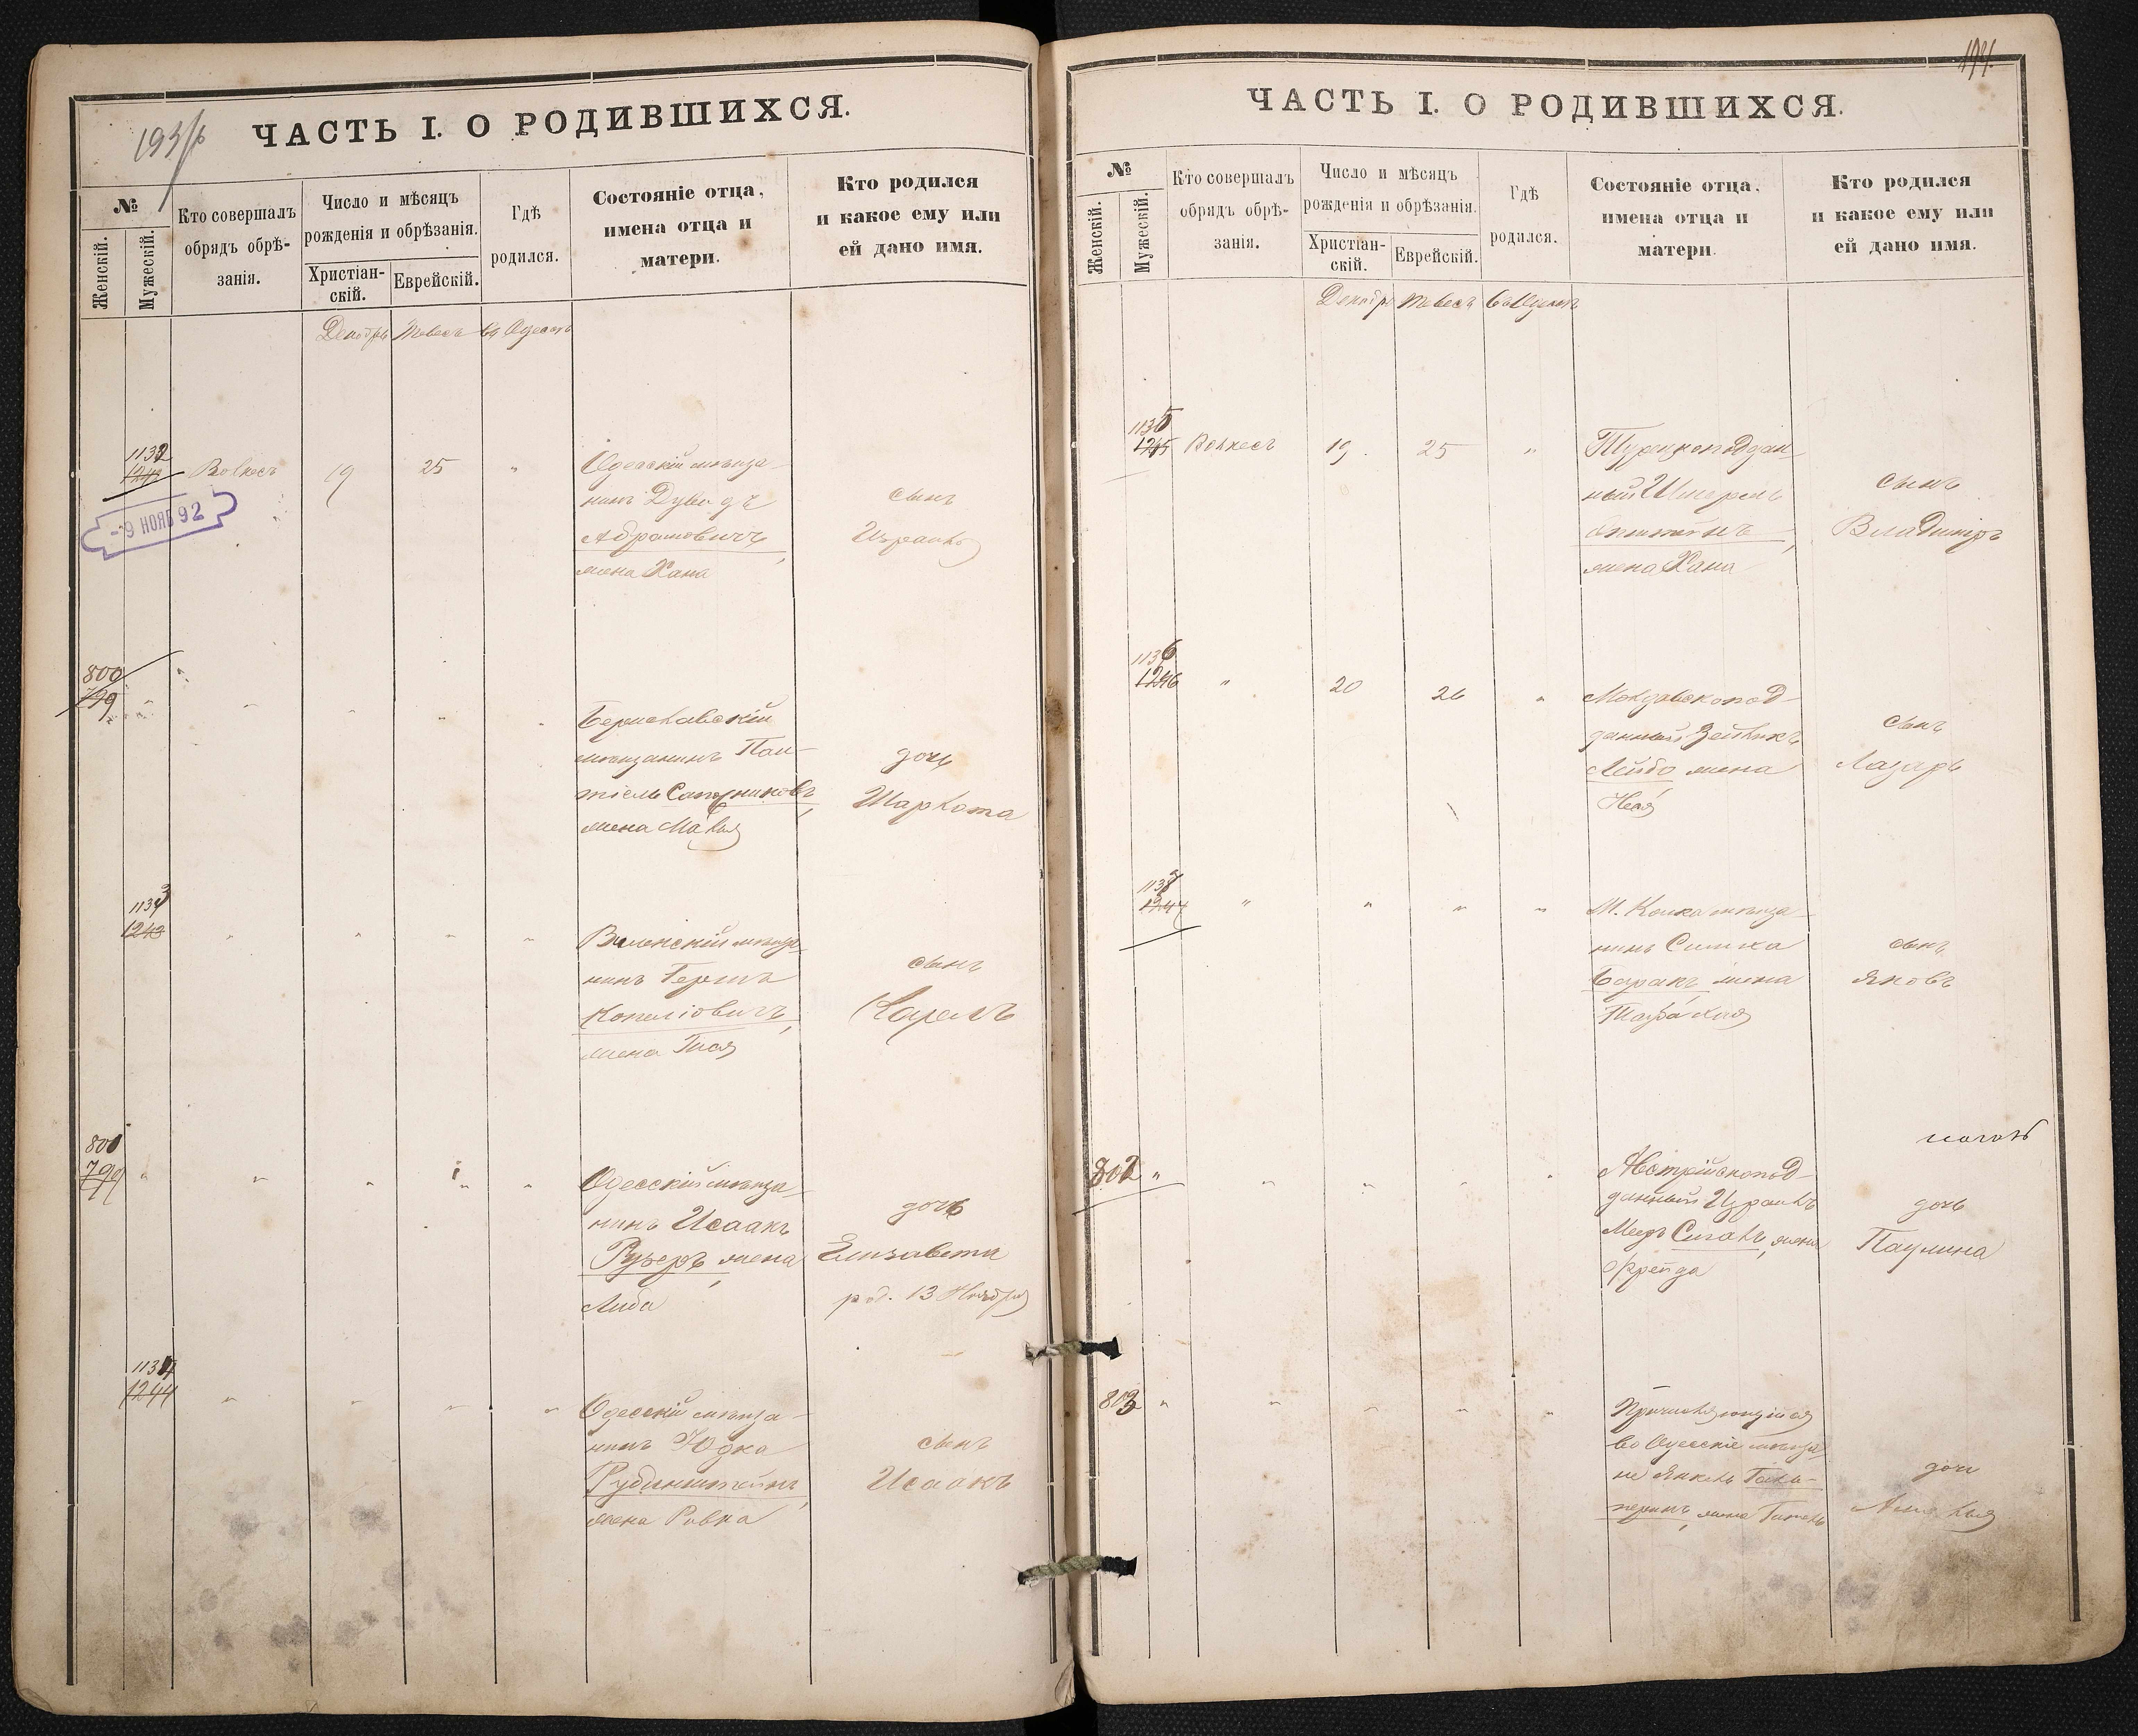 193/б
ЧАСТЬ I. О РОДИВШИХСЯ.
№
Женскій.
Мужескій.
Кто совершалъ
обрядъ обрѣ-
занія.
Число и мѣсяцъ
рожденія и обрѣзанія.
Христіан-
скій.
Еврейскій.
Гдѣ
родился.
Состояніе отца,
имена отца и
матери.
Кто родился
и какое ему или
ей дано имя.
Декабрь Тевесъ Въ Одессѣ
1132
1242 Волкесъ 19 25 "
-9 НОЯБ 92
Одесскій мѣща-
нинъ Дувидъ
Абрамовичъ,
жена Хана
сынъ
Израиль
800
799
Бериславскій
мѣщанинъ Пал-
тіель Сапожниковъ,
жена Малья
дочь
Шарлота
1133
1243
Виленскій мѣща-
нинъ Гершъ
Копеліовичъ,
жена Гися
сынъ
Карлъ
801
799
Одесскій мѣща-
нинъ Исаакъ
Рузеръ, жена
Либа
дочь
Елизавета
род. 13 Ноября
1134
1244
Одесскій мѣща-
нинъ Юдка
Рубинштейнъ,
жена Ривка
сынъ
Исаакъ
194.
ЧАСТЬ I. О РОДИВШИХСЯ.
№
Женскій.
Мужескій.
Кто совершалъ
обрядъ обрѣ-
занія.
Число и мѣсяцъ
рожденія и обрѣзанія.
Христіан-
скій.
Еврейскій.
Гдѣ
родился.
Состояніе отца,
имена отца и
матери.
Кто родился
и какое ему или
ей дано имя.
Декабрь Тевесъ Въ Одессѣ
1135
1245 Волкесъ 19. 25 "
Турецкоподдан-
ный Шмерель
жена Хана
сынъ
Владиміръ
1136
1246 " 20 26 "
Молдавскопод-
данный Зейликъ
Лейбо жена
Нехя
сынъ
Лазарь
1137
1247 " " " "
мѣща-
нинъ Симха
Баракъ жена
сынъ
Яковъ
802 "
Австрійскопод-
данный Израиль
Мееръ Сигаль, жена
Фрейда
дочь
Паулина
803 "
Причисляющійся
во Одесскіе мѣща-
не Янкель Галь-
перинъ, жена Гитель
дочь
Амалья